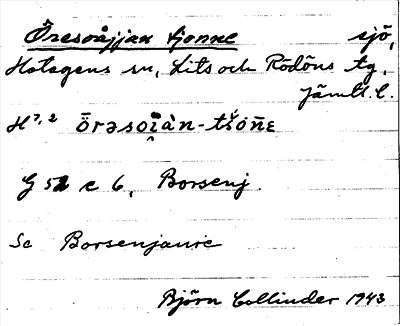 Öresoåjjan tjonne sjö,
Hotagens sn, Lits och Rödöns tg,
Jämtl. l.
H7,2 örəsoi̯àn-tšóñɛ
G 52 c 6, Borsenj.
Se Borsenjaure
Björn Collinder 1943